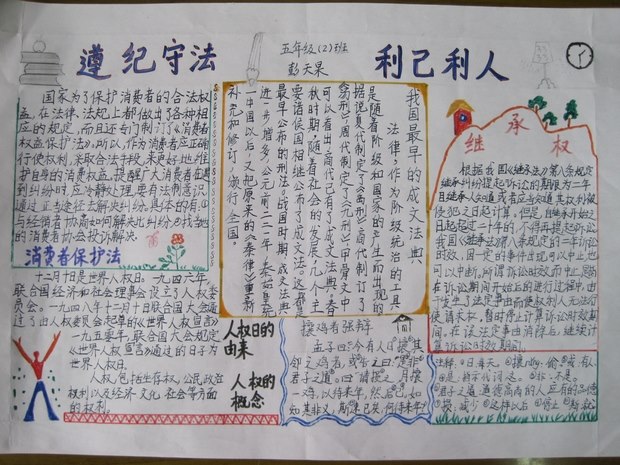 遵纪守法
五年级(2)班
彭天杲
利己利人
国家为了保护消费者的合法权
益,在法律、法规上都做出了各种相
应的规定,而且还专门制订了《消费者
权益保护法》,所以,作为消费者应正确
行使权利,采取合法手段,来更好地维
护自身的消费权益,提醒广大消费者遇
到纠纷时应冷静处理,要有法制意识,
通过正当途径去解决纠纷。具体的有:
与经销者协商如何解决此纠纷;找当地
的消费者协会投诉解决。
消费者保护法
十二月十日是世界人权日。一九四六年,
联合国经济和社会理事会设立了人权委
员会。一九四八年十二月十日联合国大会通
过了由人权委员会起草的《世界人权宣言》
一九五零年,联合国大会规定
《世界人权宣言》通过的日子为
世界人权日。
人权,包括生存权、公民政治
权利以及经济文化、社会等方面
的权利。
人权日的
由来
人权的
概念
我国最早的成文法典
法律,作为阶级统治的工具,
是随着阶级和国家的产生而出现的。
据说夏代制定了《禹刑》商代制订了
《汤刑》周代制定了《九刑》甲骨文中
可以看出,商代已有了成文法典。春
秋时期,随着社会的发展,几个主
要诸侯国相继公布了成文法。这都是
最早公布的刑法。战国时期,成文法典
进一步增多,公元前二二一年,秦始皇统
一中国以后,又把原来的《秦律》重新
补充和修订,颁行全国。
攘鸡者狡辩
孟子曰:今有人日攘其
邻之鸡者,或告之曰:是非
君子之道。曰:请损之,月攘
一鸡,以待来年,然后已。如
知其非义,斯速已矣,何待来年?
继承权
根据我国《继承法》第八条规定
继承纠纷提起诉讼的期限为二年
自继承人知道或者应当知道其权利被
侵犯之日起计算,但是,自继承开始之
日起超过二十年的,不得再提起诉讼
我国《继承法》第八条规定的二年诉讼
时效,因一定的事由出现可以中止,也
可以中断,所谓诉讼时效的中止,是指
在诉讼期间开始以后的进行过程中,由
于发生了法定事由而使权利人无法行
使请求权,暂时停止计算诉讼时效期
间,在该法定事由消除后,继续计
算诉讼时效期间。